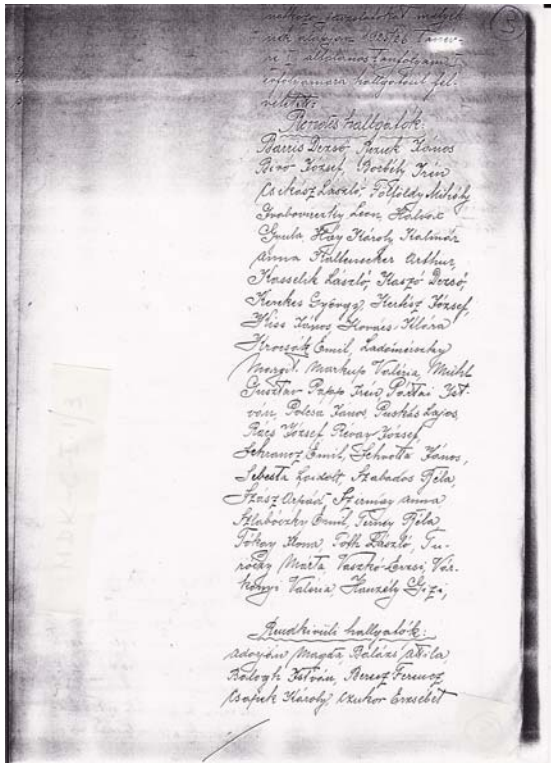 nek alapján 1925/26 tanév-
re I. általános tanfolyami
évfolyamára hallgatóul fel-
vétetik:
Rendes hallgatók:
Barris Dezső János
Biró József, Borbély Irén
Csikász László, Földy Mihály
Leon,
Gyula, Háy Károly Kalmár
Anna Kallenecker Arthur,
Kasselik László, Kaszó Dezső,
Kerekes György, Kertész József,
Kiss János, Kovács Klára
Emil, Ladomérszky
Margit, Markup Valéria, Mühl
Gusztáv Papp Irén Pártai Ist-
ván, Polcsa János, Puskás Lajos,
Rácz József Révay József,
Schrancz Emil, Schrotta János,
Sebesta Szabados Béla,
Szász Árpád Szirmay Anna
Szlaboczky Emil, Terney Béla
Tókay Ilona, Tóth László, Tu-
róczy Márta Vaszkó Erzsi, Vár-
konyi Valéria, Gizi,
Rendkivüli hallgatók:
Adorján Magda, Balázs Attila,
Balogh István, Beresz Ferencz
Károly Czukor Erzsébet
MDK-C-I-1/3